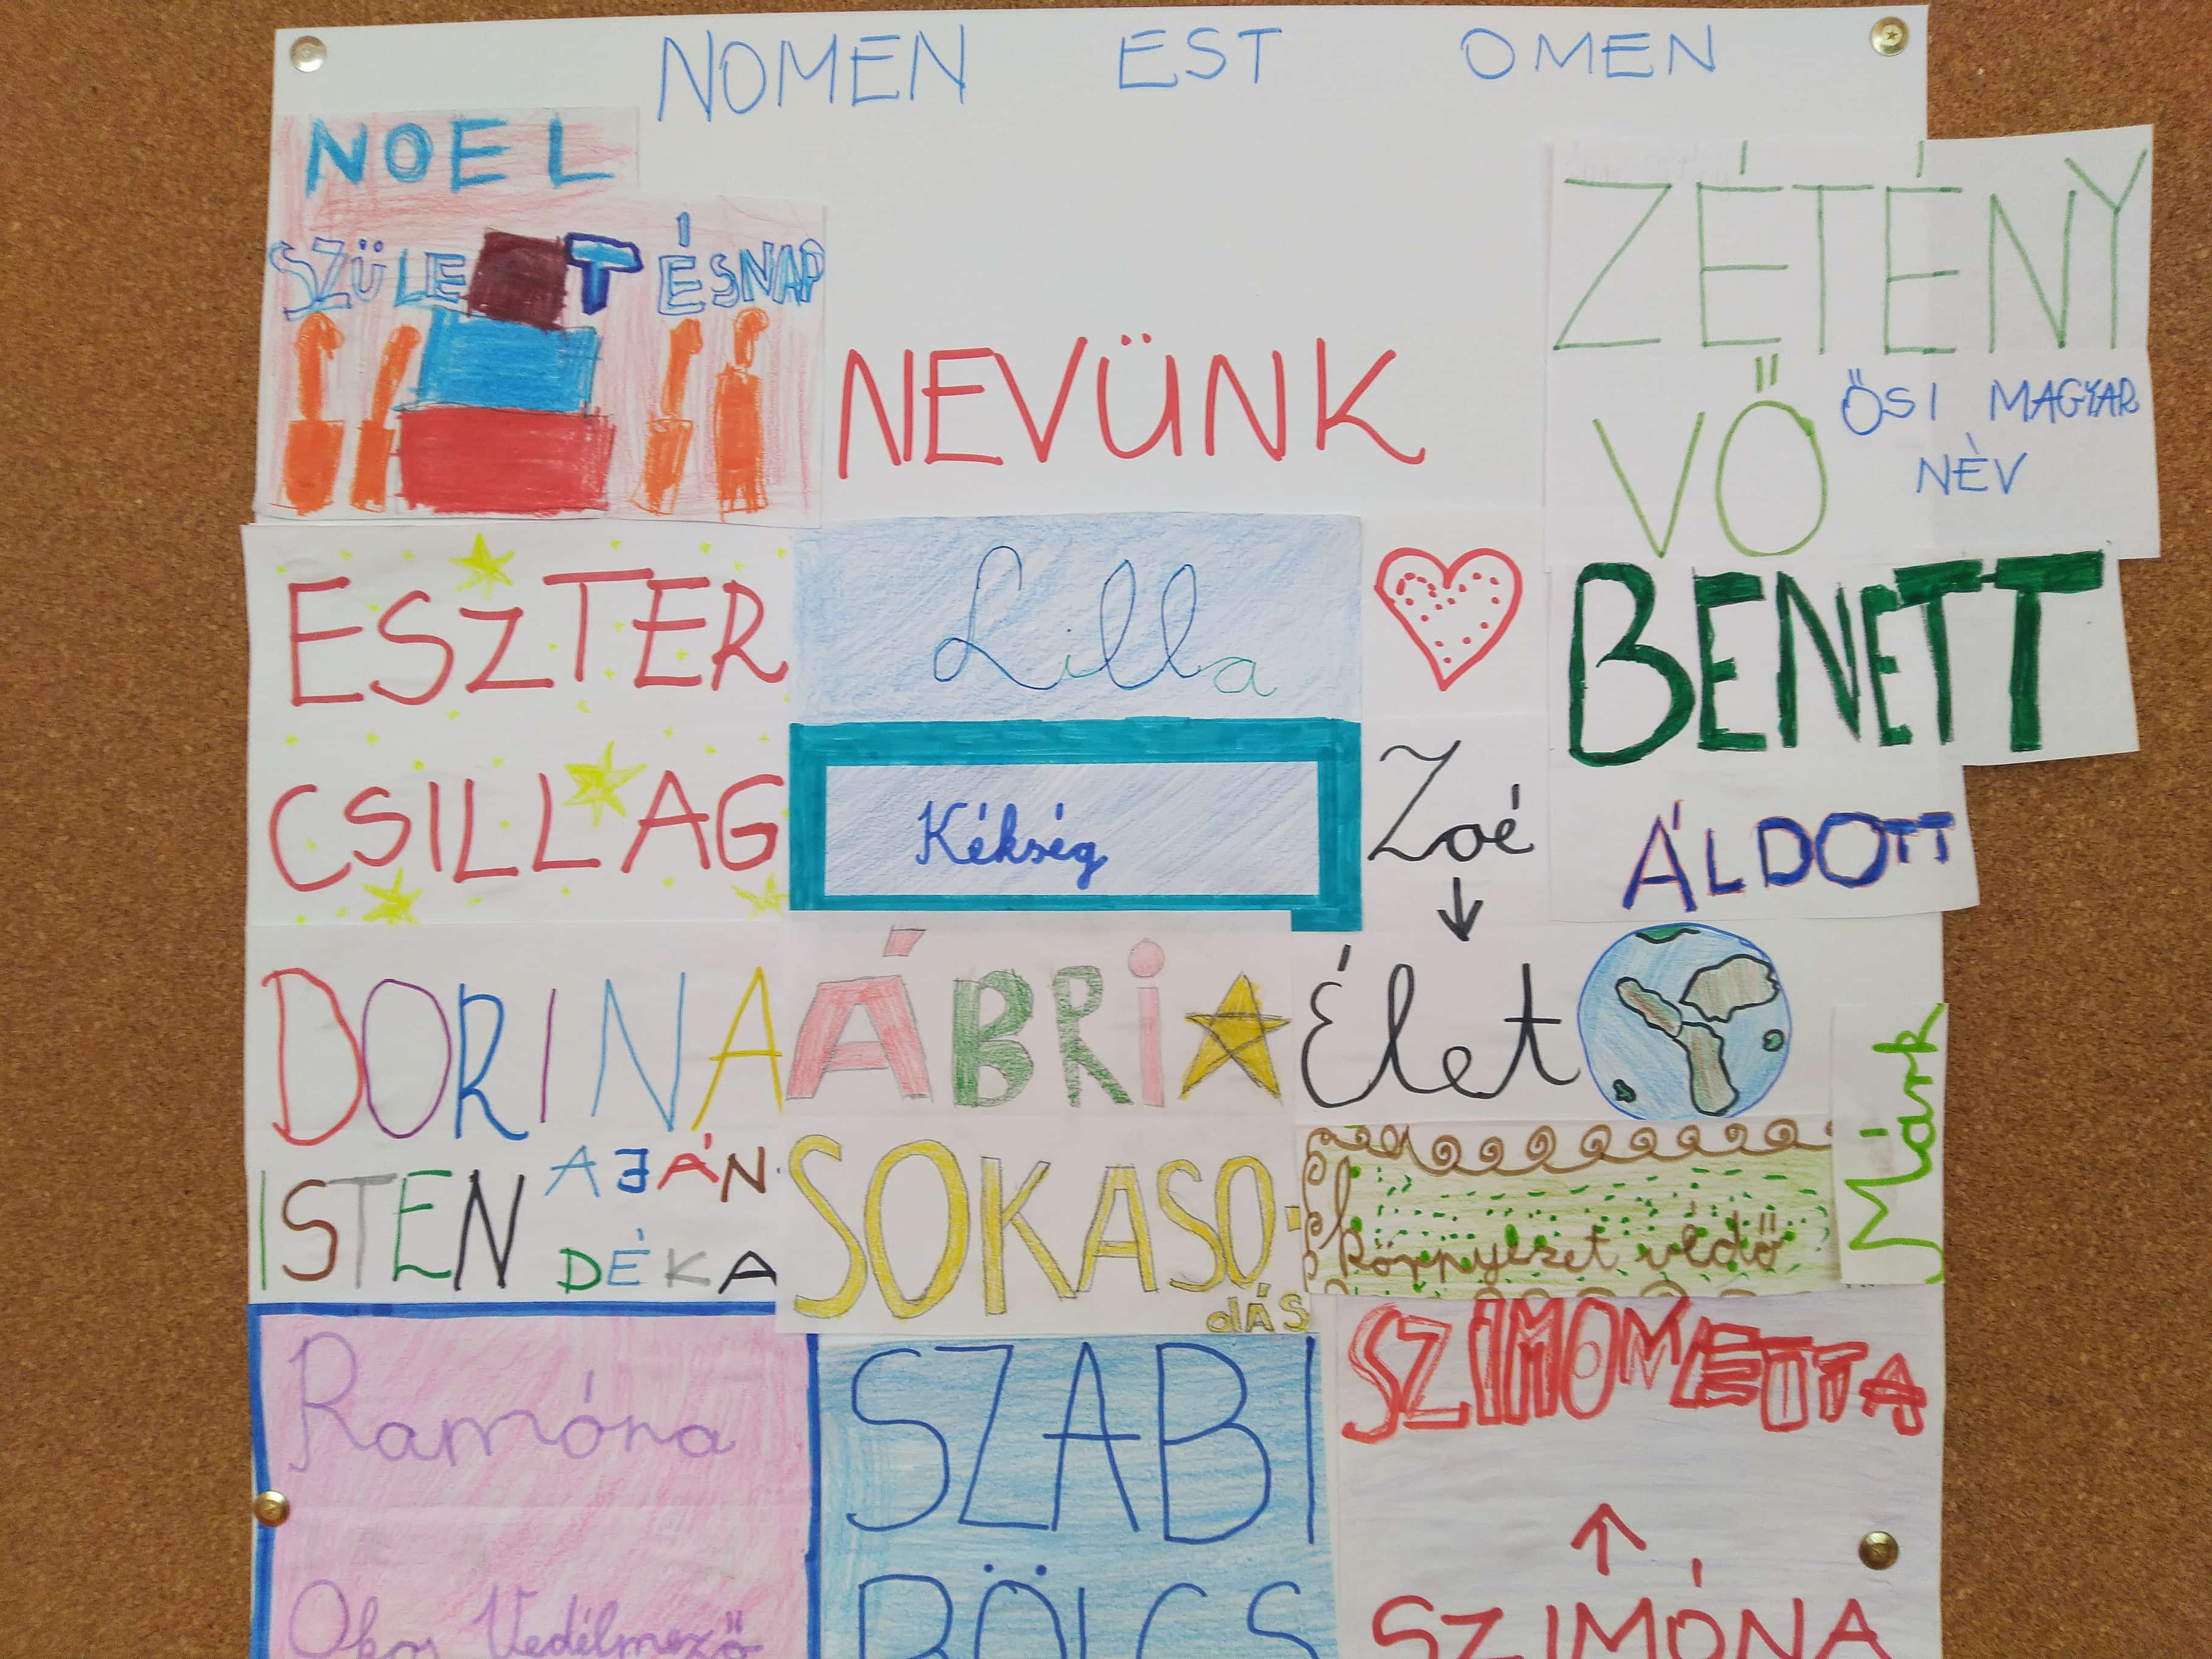 NOMEN EST OMEN
NOEL
SZÜLETÉSNAP
NEVÜNK
ZÉTÉNY
VŐ
ŐSI MAGYAR
NÈV
ESZTER
CSILLAG
Lilla
Kékség
Zoé
Élet
BENETT
ÁLDOTT
DORINA
ISTEN AJÁN
DÉKA
ÁBRI
SOKASO-
dÁS
Márk
környezet védő
Ramóna
Okos Vedélmező
SZABI
BÖLCS
SZIMONETTA
SZIMÓNA